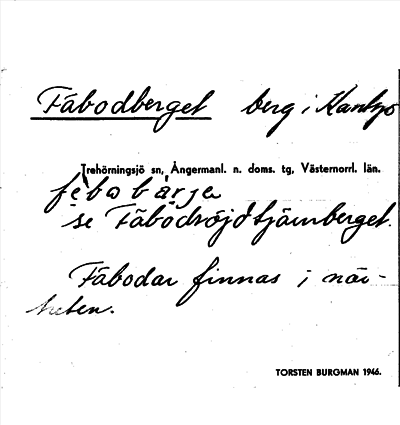 Fäbodberget berg i Kantsjö
Trehörningsjö sn, Ångermanl. n. doms. tg, Västernorrl. län.
fèbobärje
se Fäbodröjdtjärnberget.
Fäbodar finnas i när-
heten.
TORSTEN BURGMAN 1946.